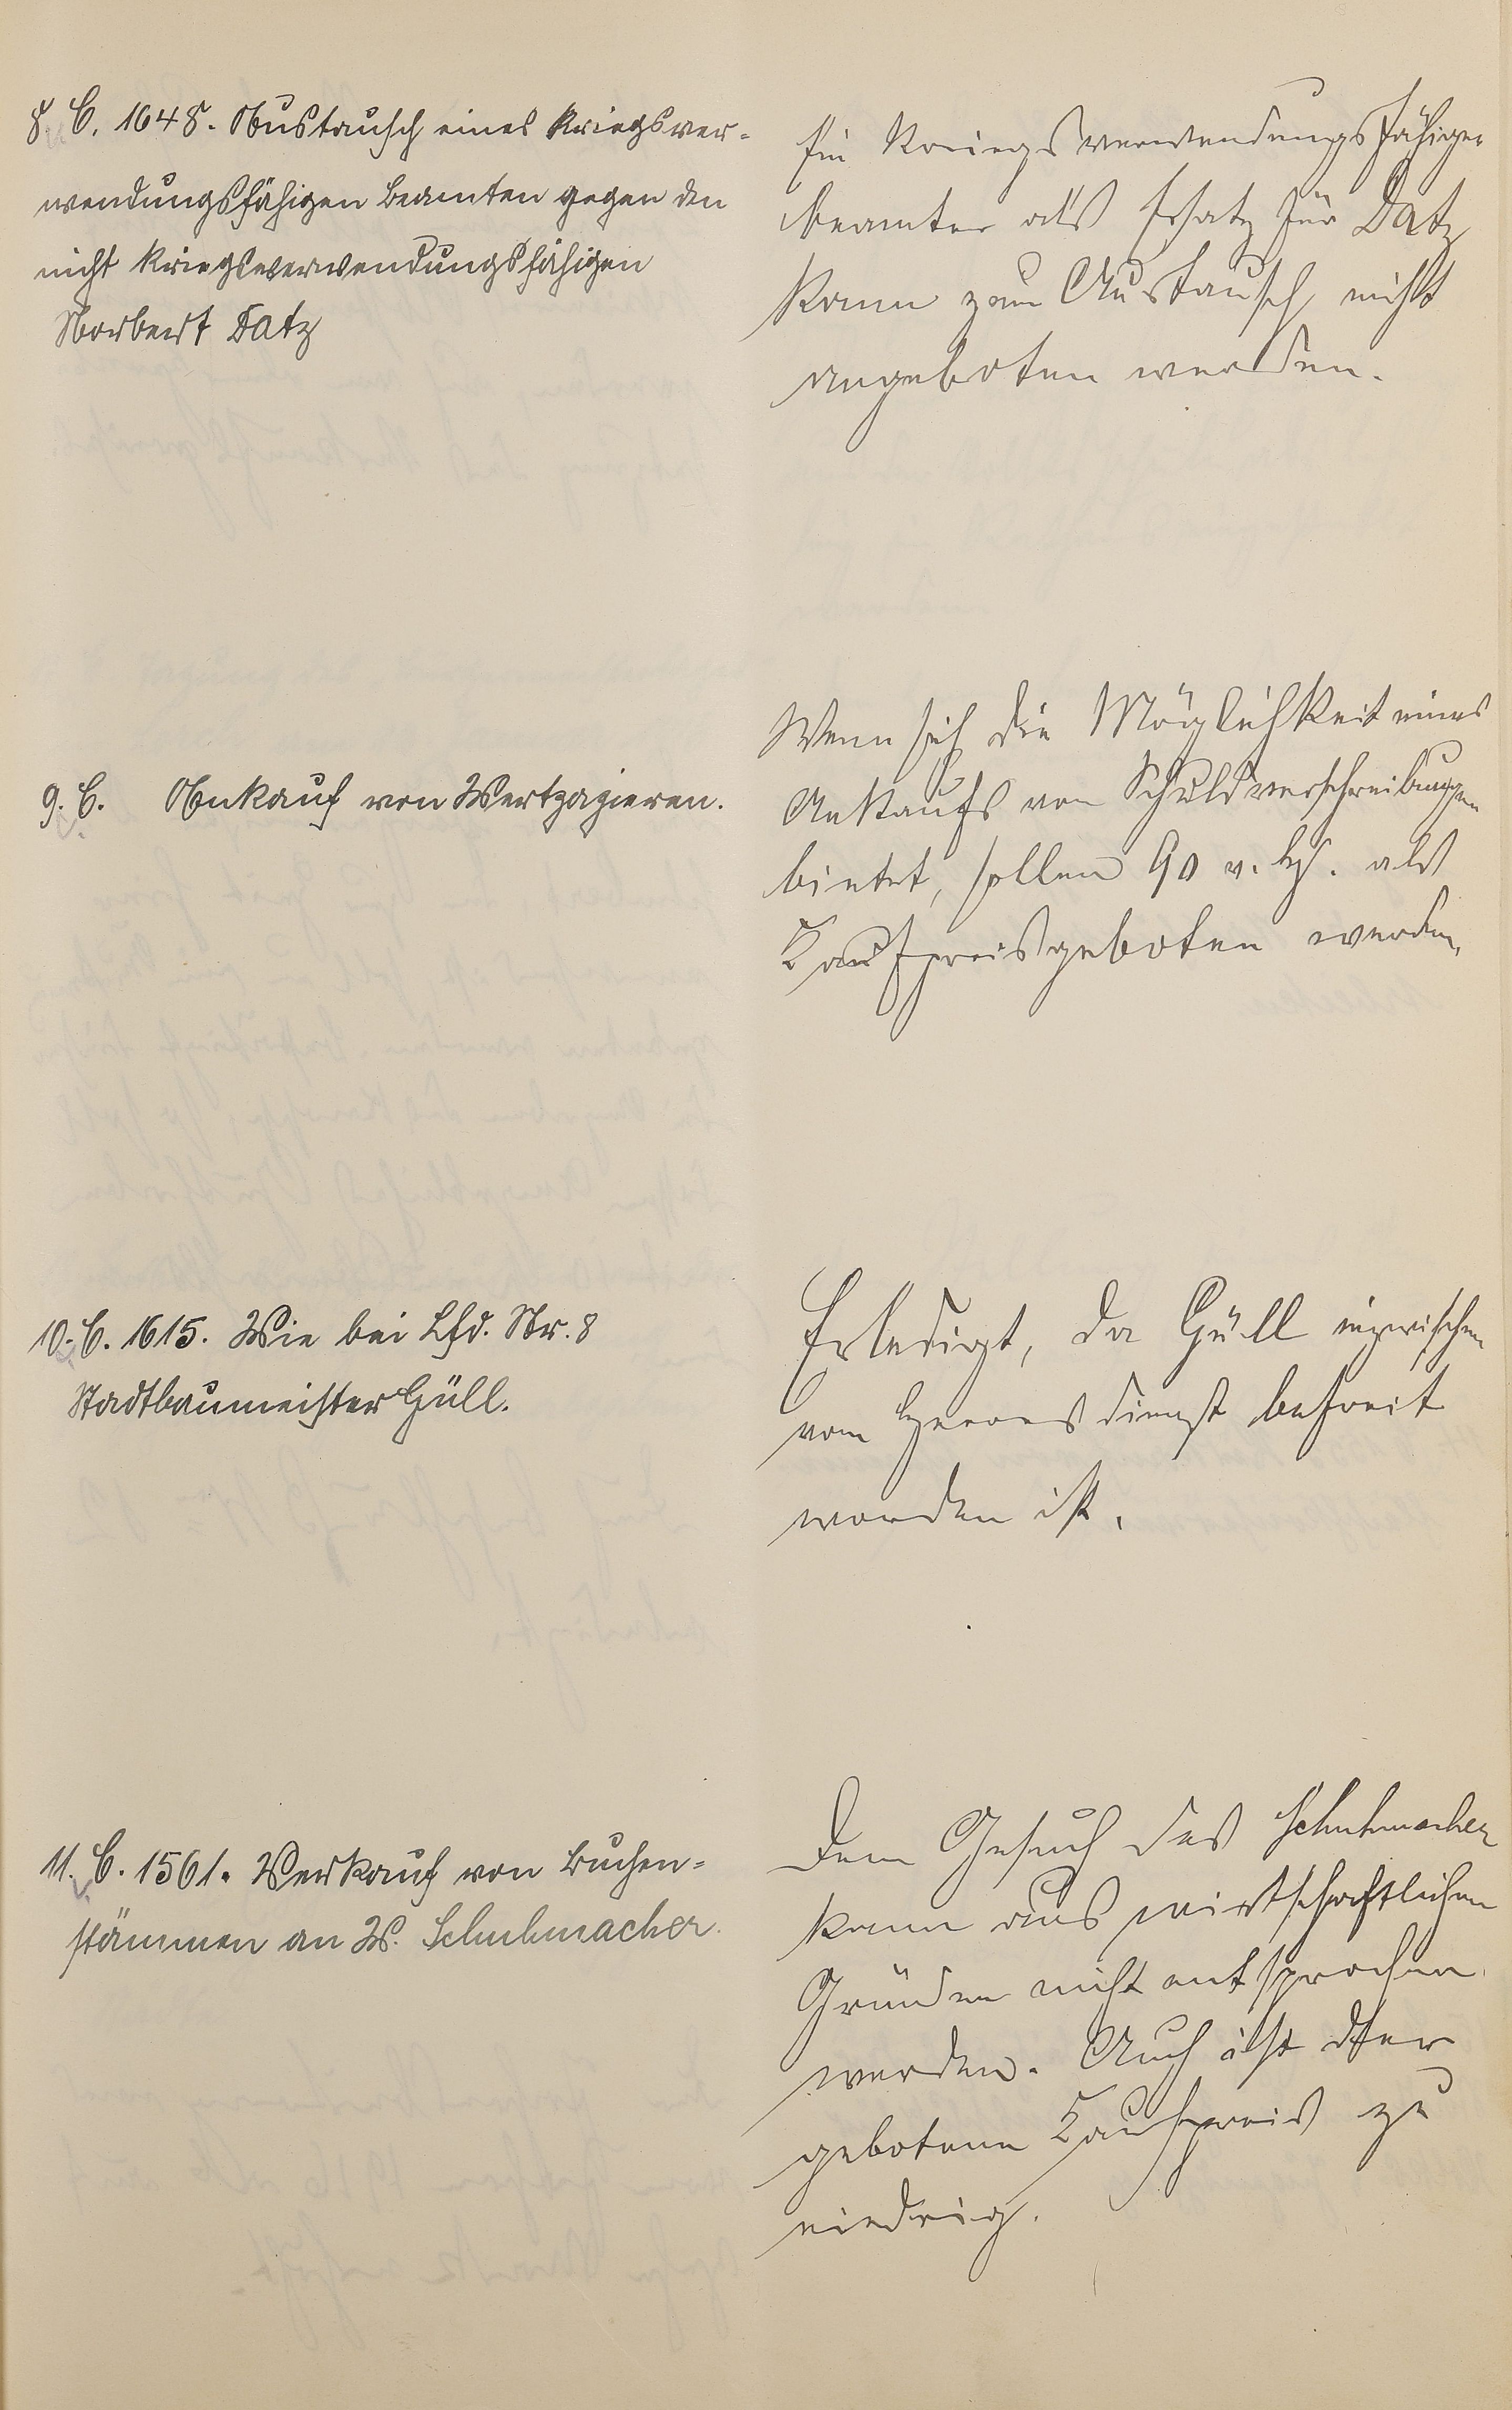 8. C. 1648. Austausch eines Kriegsver-
wendungsfähigen Beamten gegen den
nicht Kriegsverwendungsfähigen
Norbert Datz
Ein Kriegsverwendungsfähiger
Beamter als Ersatz für Datz
kann zum Austausch nicht
angeboten werden.
9. C. Ankauf von Wertpapieren.
Wenn sich die Möglichkeit eines
Ankaufs von Schuldverschreibungen
bietet, sollen 90 v. H. als
Kaufpreis geboten werden.
10. C. 1615. Wie bei Lfd. Nr. 8
Stadtbaumeister Güll.
Erledigt, da Güll inzwischen
vom Heeresdienst befreit
worden ist.
11. C. 1561. Verkauf von Buchen-
stämmen an W. Schuhmacher.
Dem Gesuch des Schuhmacher
kann aus wirtschaftlichen
Gründen nicht entsprochen
werden. Auch ist der
gebotene Kaufpreis zu
niedrig.